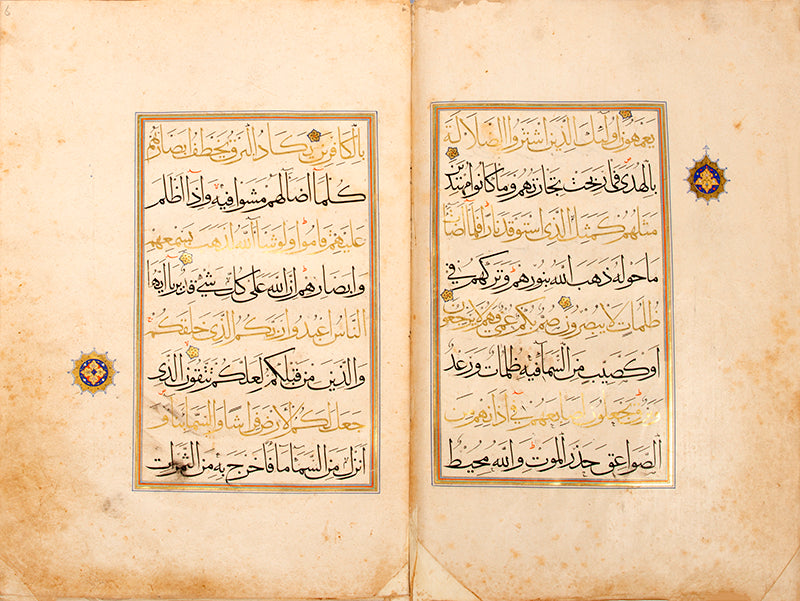 يعمهون اولئك الذين اشتروا الضلالة
بالهدى فما ربحت تجارتهم وما كانوا مهتدين
مثلهم كمثل الذي استوقد نارا فلما اضات
ما حوله ذهب الله بنورهم وتركهم في
ظلمات لا يبصرون صم بكم عمي فهم لا يرجعون
او كصيب من السما فيه ظلمات ورعد
وبرق يجعلون اصابعهم في اذانهم من
الصواعق حذر الموت والله محيط
بالكافرين يكاد البرق يخطف ابصارهم
كلما اضا لهم مشوا فيه واذا اظلم
عليهم قاموا ولو شا الله لذهب بسمعهم
وابصارهم ان الله على كل شي قدير يا ايها
الناس اعبدوا ربكم الذي خلقكم
والذين من قبلكم لعلكم تتقون الذي
جعل لكم الارض فراشا والسما بنا و
انزل من السما ما فاخرج به من الثمرات